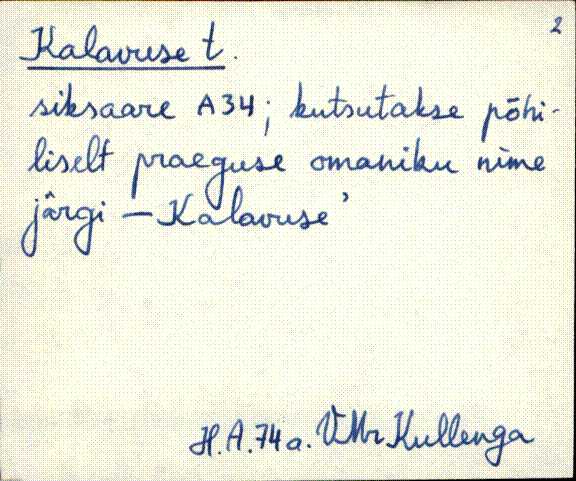 2
Kalavuse t.
siksaare A34; kutsutakse põhi-
liselt praeguse omaniku nime
järgi – Kalavuse'
H.A.74a. VMr Kullenga